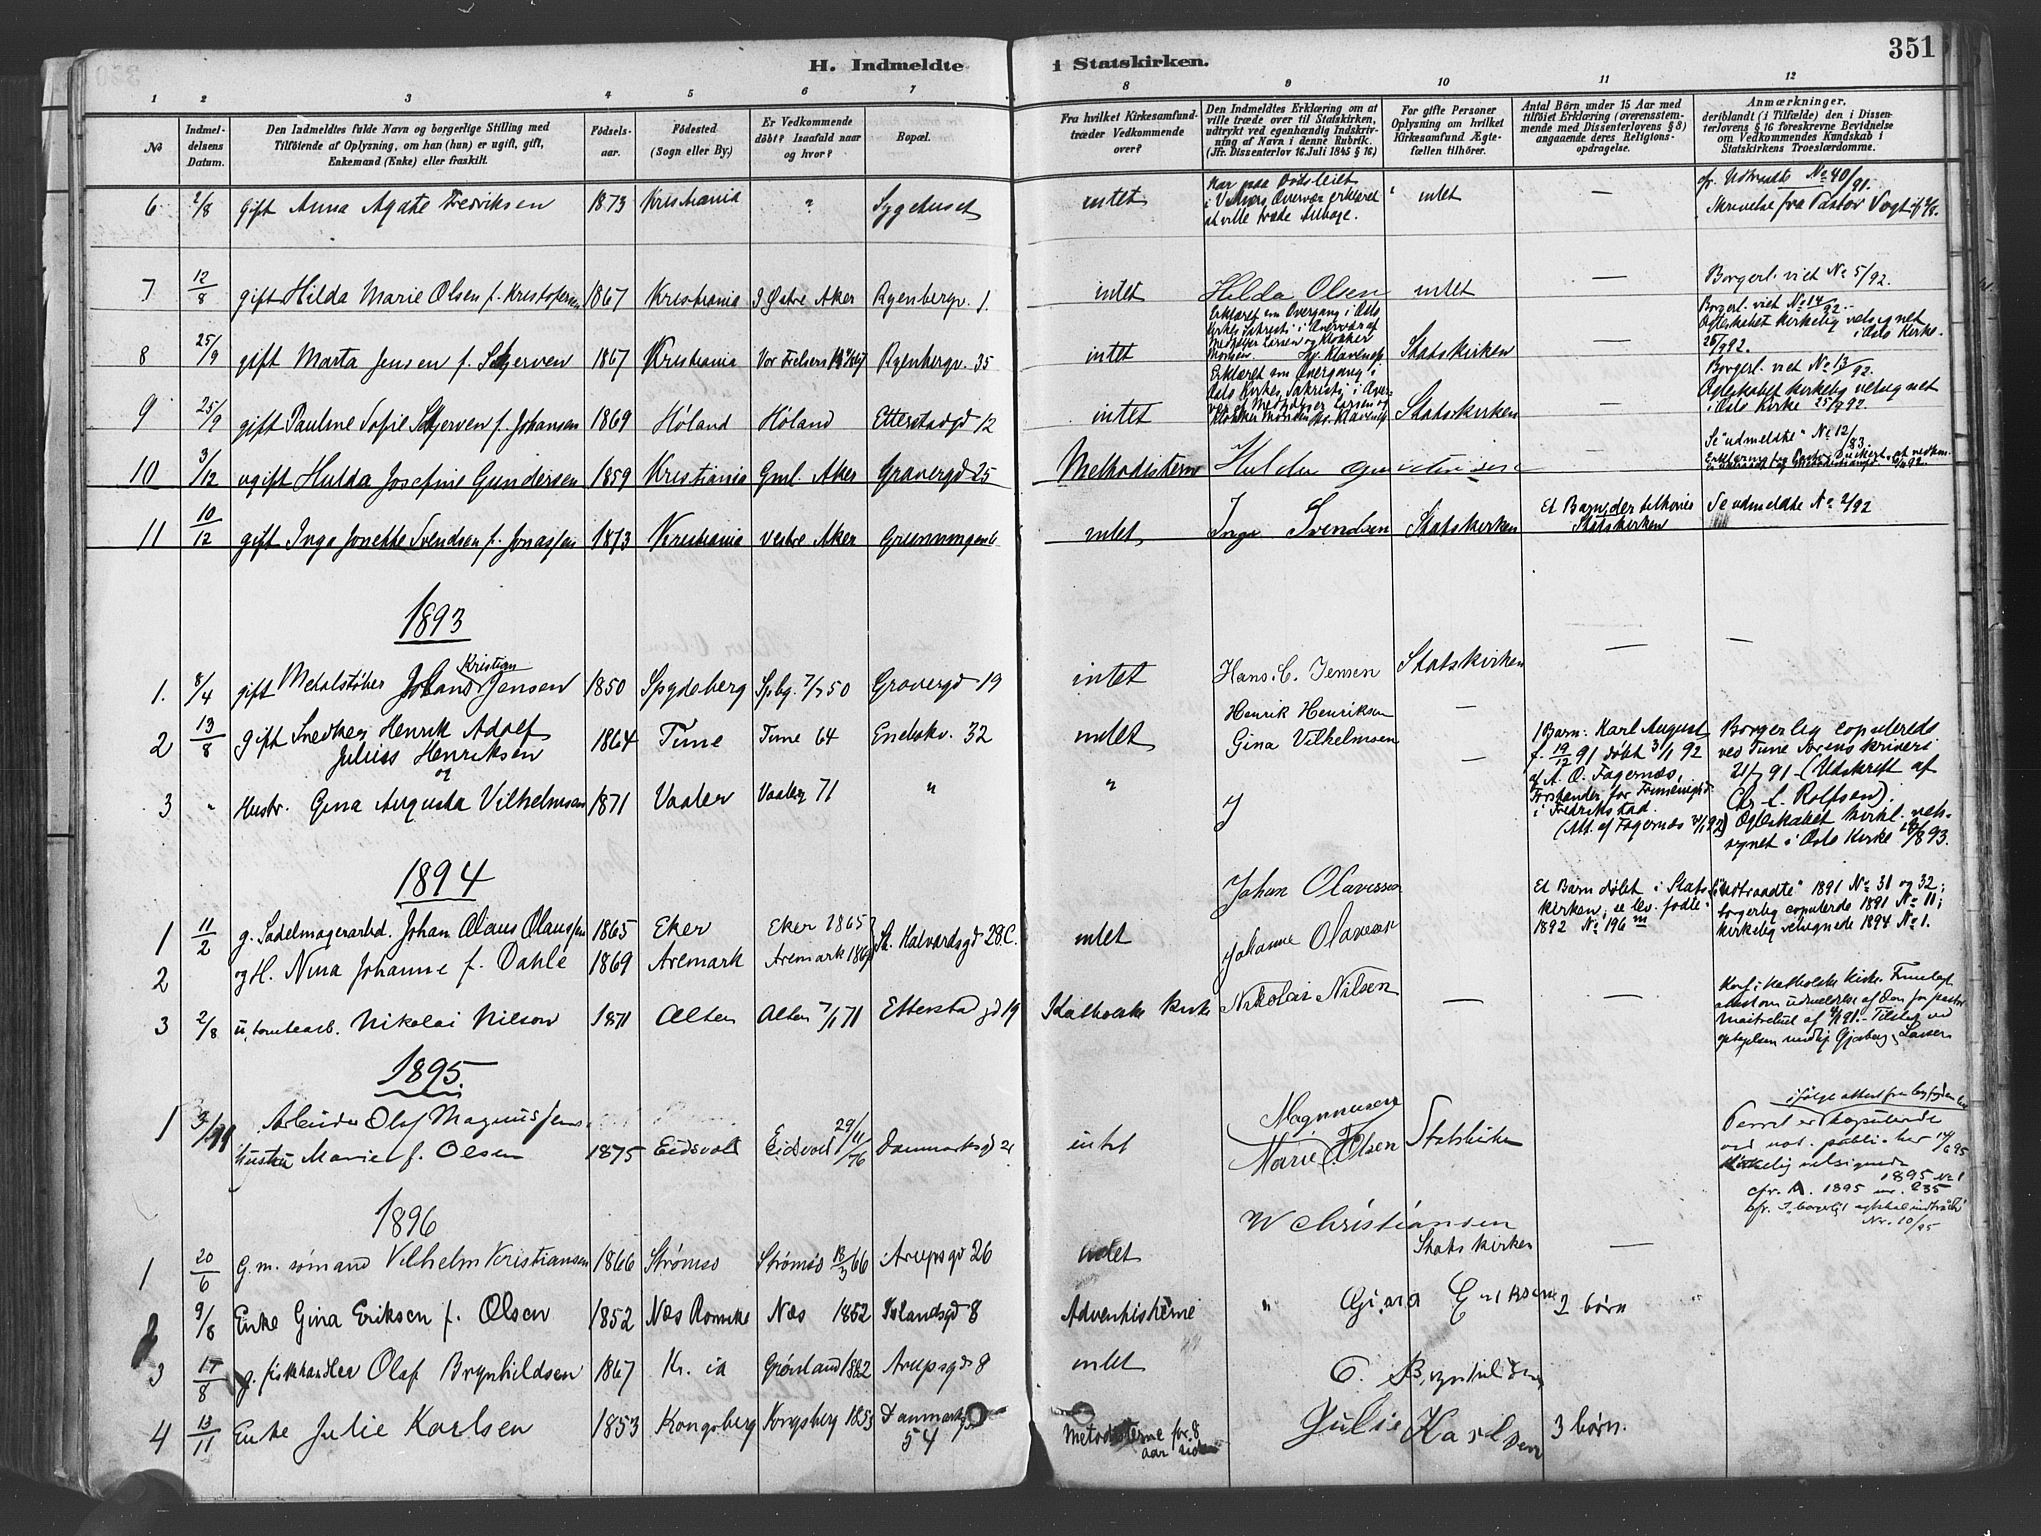 H. Indmeldte i Statskirken. 351
1 2 3 4 5 6 7 8 9 10 11 12
No
Indmel-
delsens
Datum.
Den Indmeldtes fulde Navn og borgerlige Stilling med
Tilföiende af Oplysning, om han (hun) er ugift, gift,
Enkemand (Enke) eller fraskilt.
Födsels-
aar.
Födested
(Sogn eller By.)
Er Vedkommende
döbt? Isaafald naar
og hvor?
Bopæl.
Fra hvilket Kirkesamfund-
træder Vedkommende
over?
Den Indmeldtes Erklæring om at
ville træde over til Statskirken,
udtrykt ved egenhændig Indskriv-
ning af Navn i denne Rubrik.
(Jfr. Dissenterlov 16. Juli 1845 § 16)
For gifte Personer
Oplysning om hvilket
Kirkesamfund Ægte-
fællen tilhörer.
Antal Börn under 15 Aar med
tilföiet Erklæring (overensstem-
mende med Dissenterlovens § 8)
angaaende deres Religions-
opdragelse.
Anmærkninger,
deriblandt (i Tilfælde) den i Dissen-
terlovens § 16 foreskrevne Bevidnelse
om Vedkommendes Kundskab i
Statskirkens Troeslærdomme.
6 2/8 gift Anna Agate Fredriksen 1873 Kristiania " Sygehuset intet
Har paa Dødsleiet
i Vidners Overvær erklæret
at ville træde tilbage.
intet —
cfr. Udtraadte No 40/91.
Skrivelse fra Pastor Vogt af 2/8.
7 12/8 gift Hilda Marie Olsen f. Kristofersen 1867 Kristiania I Østre Aker Ryenbergv. 1. intet Hilda Olsen intet — Borgerl. viet No 5/92.
8 25/9 gift Marta Jensen f. Skjerven 1867 Kristiania Vor Frelsers Ryenbergv. 35 intet
Erklæret sin Overgang i Oslo
Kirkes Sakristi i Overvær af
Medhjelper Larsen og Klokker
Monsen. Hv. Klaveness
Statskirken —
Borgerl. viet No 14/92.
Ægteskabet kirkelig velsignet
i Oslo Kirke
25/9 92.
9 25/9 gift Pauline Sofie Skjerven f. Johansen 1869 Høland Høland Etterstadgd 12 intet
Erklæret sin Overgang i
Oslo Kirkes Sakristi i Over-
vær af Medhjelper Larsen og
Klokker Monsen Hv. Klaveness
Statskirken —
Borgerl. viet No 13/92.
Ægteskabet kirkelig velsignet
i Oslo Kirke 25/9 92.
10 3/12 ugift Hulda Josefine Gundersen 1859 Kristiania Gml. Aker Gravergd 25 Methodisterne Hulda Gundersen —
Se "udmeldte" No 12/83.
11 10/12 gift Inga Jonette Svendsen f. Jonassen 1873 Kristiania Vestre Aker intet Inga Svendsen Statskirken
Et Barn, der tilhører
Statskirken
Se udmeldte No 2/92
1893
1. 8/4 gift Metalstøber Johan Kristian Jensen 1850 Spydeberg Spbg. 7/7 50 Gravergd 19 intet Hans. C. Jensen Statskirken — —
2 13/8 gift Snedker Henrik Adolf
Julius Henriksen 1864 Tune Tune 64 Enebakv. 32 intet Henrik Henriksen —
og
3 " Hustr. Gina Augusta Vilhelmsen 1871 Vaaler Vaaler 71 " " Gina Vilhelmsen —
1 Barn: Karl August
f. 19/12 91 døbt 3/1 92
af A. O. Fagernæs,
Forstander for Frimenighd
i Fredrikstad.
Borgerlig copulerede
ved Tune Sorenskriveri
21/7 91 (Udskrift af
Chr. L. Rolfsen);
Ægteskabet kirkl. vel-
signet i Oslo Kirke 13/8 93.
1894
1 11/2 g. Sadelmagerarbd. Johan Olaus Olaussen 1865 Eker Eker 1865 St. Halvardsgd 28C. intet Johan Olavessen
2 og H. Nina Johanne f. Dahle 1869 Aremark Aremark 1869 Johanne Olavesen
Et Barn døbt i Stats-
kirken, se lev. fødte
1892 No 196 m
"Udtraadte" 1891 No 31 og 32;
borgerlig copulerede 1891 No 11;
kirkelig velsignede 1894 No 1.
3 2/8 u. tomtearb. Nikolai Nilsen 1871 Alten Alten 7/1 71 Etterstadgd 19 Katholske Kirke Nikolai Nilsen — —
1895.
1 Arbeider Olaf Magnussens
Hustru Marie f. Olsen 1875 Eidsvold Eidsvold 29/11 76 Danmarksgd 21 intet
Magnussen
Marie f. Olsen
Statskirken
Parret er copulerede
ved not. public. her 14/6 95
Kirkelig velsignede
1895 No 1
cfr. A. 1895 nr. 235
Nr. 10/95
1896
1 20/6 G. m. sømand Vilhelm Kristiansen 1866 Strømsø Strømsø 18/3 66 Arupsgd 26 intet W Christiansen Statskirken —
2 9/8 Enke Gina Eriksen f. Olsen 1852 Næs Romrike Næs 1852 Islandsgd 8 Adventisterne " Gina Eriksen 2 børn
3 17/8 g. fiskhandler Olaf Brynhildsen 1867 Kr. ia Grønland 1882 Arupsgd 8 intet O. Brynhildsen
4 13/11 Enke Julie Karlsen 1853 Kongsberg Kongsberg 1853 Danmarksgd
54
Metodisterne for 8
aar siden
Julie Karlsen 3 børn.